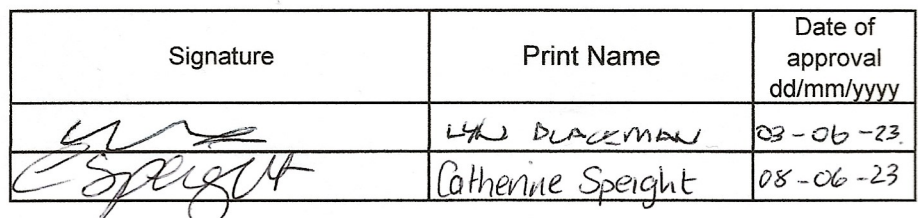 Signature Print Name Date of
approval
dd/mm/yyyy
LYN BLACKMAN 03-06-23
CSpeight Catherine Speight 08-06-23